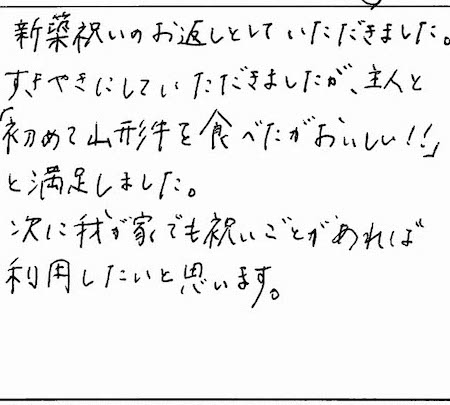 新築祝いのお返しとしていただきました。
すきやきにしていただきましたが、主人と
「初めて山形牛を食べたがおいしい!!」
と満足しました。
次に我が家でも祝いごとがあれば
利用したいと思います。